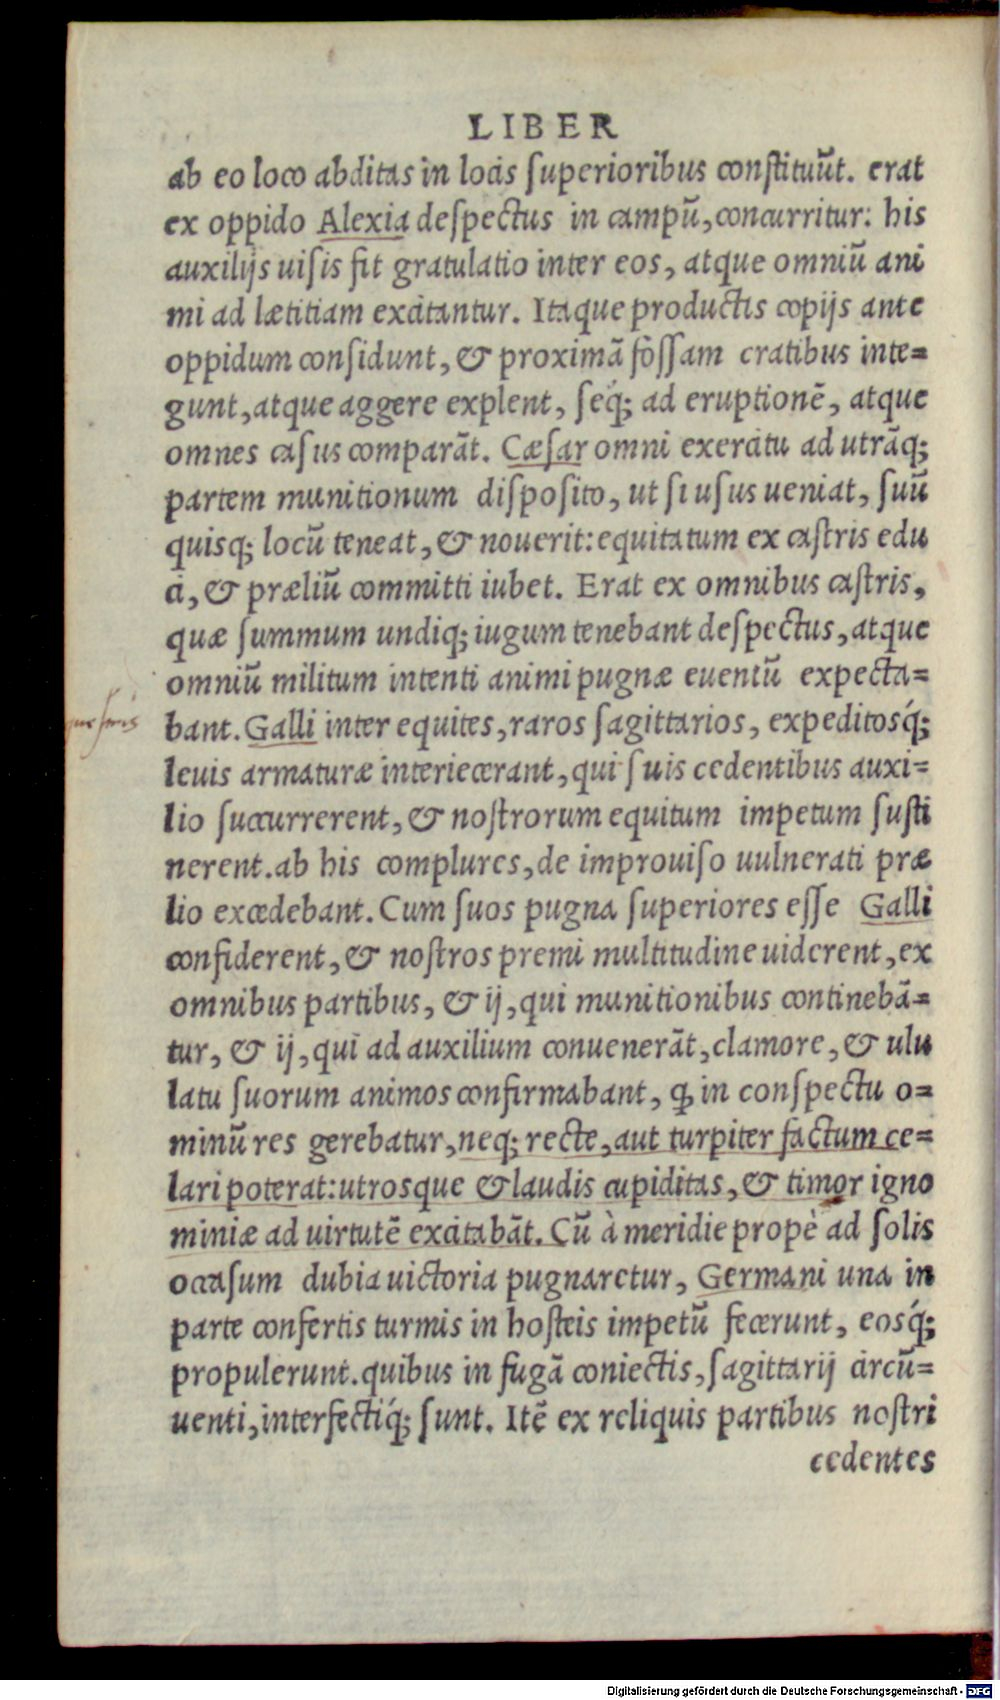 LIBER
ab eo loco abditas in locis ſuperioribus conſtituũt. erat
ex oppido Alexia deſpectus in campũ, concurritur: his
auxilijs uiſis fit gratulatio inter eos, atque omniũ ani
mi ad lætitiam excitantur. Itaque productis copijs ante
oppidum conſidunt, & proximã foſſam cratibus inte=
gunt, atque aggere explent, ſeq́; ad eruptionẽ, atque
omnes caſus comparãt. Cæſar omni exercitu ad utrãq;
partem munitionum diſpoſito, ut ſi uſus ueniat, ſuũ
quisq; locũ teneat, & nouerit: equitatum ex caſtris edu
ci, & præliũ committi iubet. Erat ex omnibus caſtris,
quæ ſummum undiq; iugum tenebant deſpectus, atque
omniũ militum intenti animi pugnæ euentũ expecta=
bant. Galli inter equites, raros ſagittarios, expeditosq́;
leuis armaturæ interiecerant, qui ſuis cedentibus auxi=
lio ſuccurrerent, & noſtrorum equitum impetum ſuſti
nerent. ab his complures, de improuiſo uulnerati præ
lio excedebant. Cum ſuos pugna ſuperiores eſſe Galli
confiderent, & noſtros premi multitudine uiderent, ex
omnibus partibus, & ij, qui munitionibus continebã=
tur, & ij, qui ad auxilium conuenerãt, clamore, & ulu
latu ſuorum animos confirmabant, ꝙ in conſpectu o=
minũ res gerebatur, neq; recte, aut turpiter factum ce=
lari poterat: utrosque & laudis cupiditas, & timor igno
miniæ ad uirtutẽ excitabãt. Cũ à meridie propè ad ſolis
occaſum dubia uictoria pugnaretur, Germani una in
parte confertis turmis in hoſteis impetũ fecerunt, eosq́;
propulerunt. quibus in fugã coniectis, ſagittarij circũ=
uenti, interfectiq́; ſunt. Itẽ ex reliquis partibus noſtri
cedentes
Digitalisierung gefördert durch die Deutsche Forschungsgemeinschaft - DFG